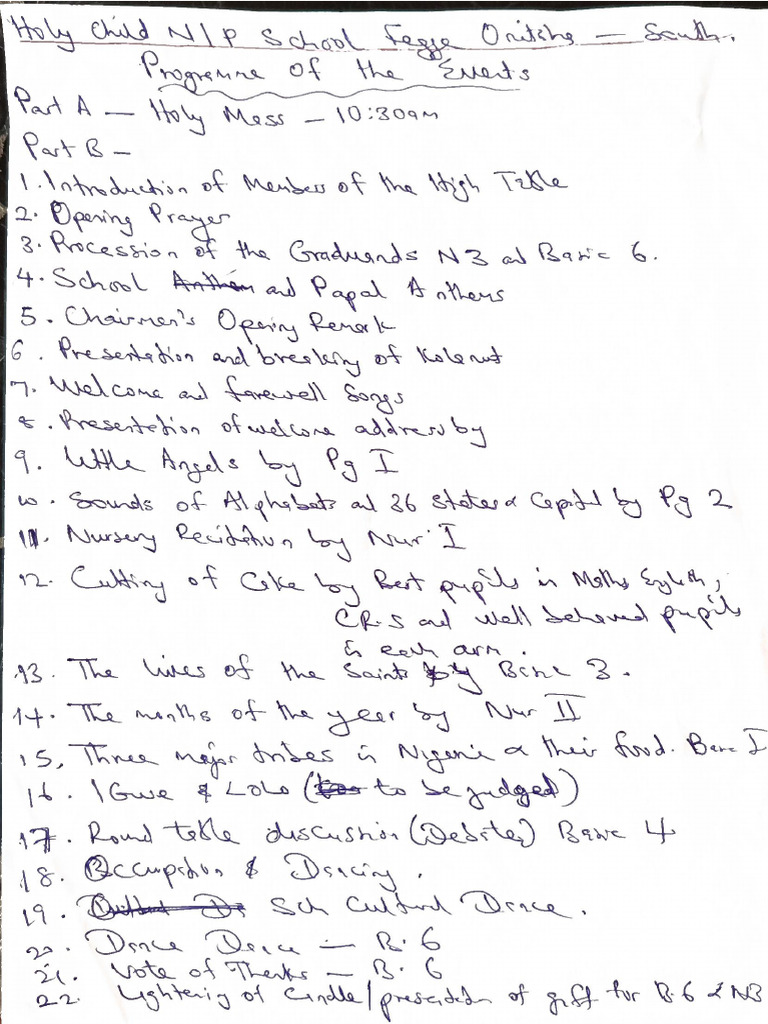 Holy Child N/P School Fegge Onitsha – South.
Programme of the Events
Part A – Holy Mass – 10:30am
Part B –
1. Introduction of Members of the High Table
2. Opening Prayer
3. Procession of the Graduands N3 and Basic 6.
4. School Anthem and Papal Anthems
5. Chairman's Opening Remark
6. Presentation and breaking of Kolanut
7. Welcome and farewell Songs
8. Presentation of welcome address by
9. Little Angels by Pg I
10. Sounds of Alphabets and 36 States & Capital by Pg 2
11. Nursery Recitation by Nur I
12. Cutting of Cake by Best pupils in Maths English,
CRS and well behaved pupils
in each arm.
13. The lives of the Saints by Basic 3.
14. The months of the year by Nur II
15. Three major tribes in Nigeria & their food. Basic I
16. IGwe & LoLo (to be judged)
17. Round table discussion (Debates) Basic 4
18. Occupation & Dancing.
19. Sch Cultural Dance.
20. Dance Dance – B. 6
21. Vote of Thanks – B. 6
22. Lightening of Candle/presentation of gift for B.6 & N3